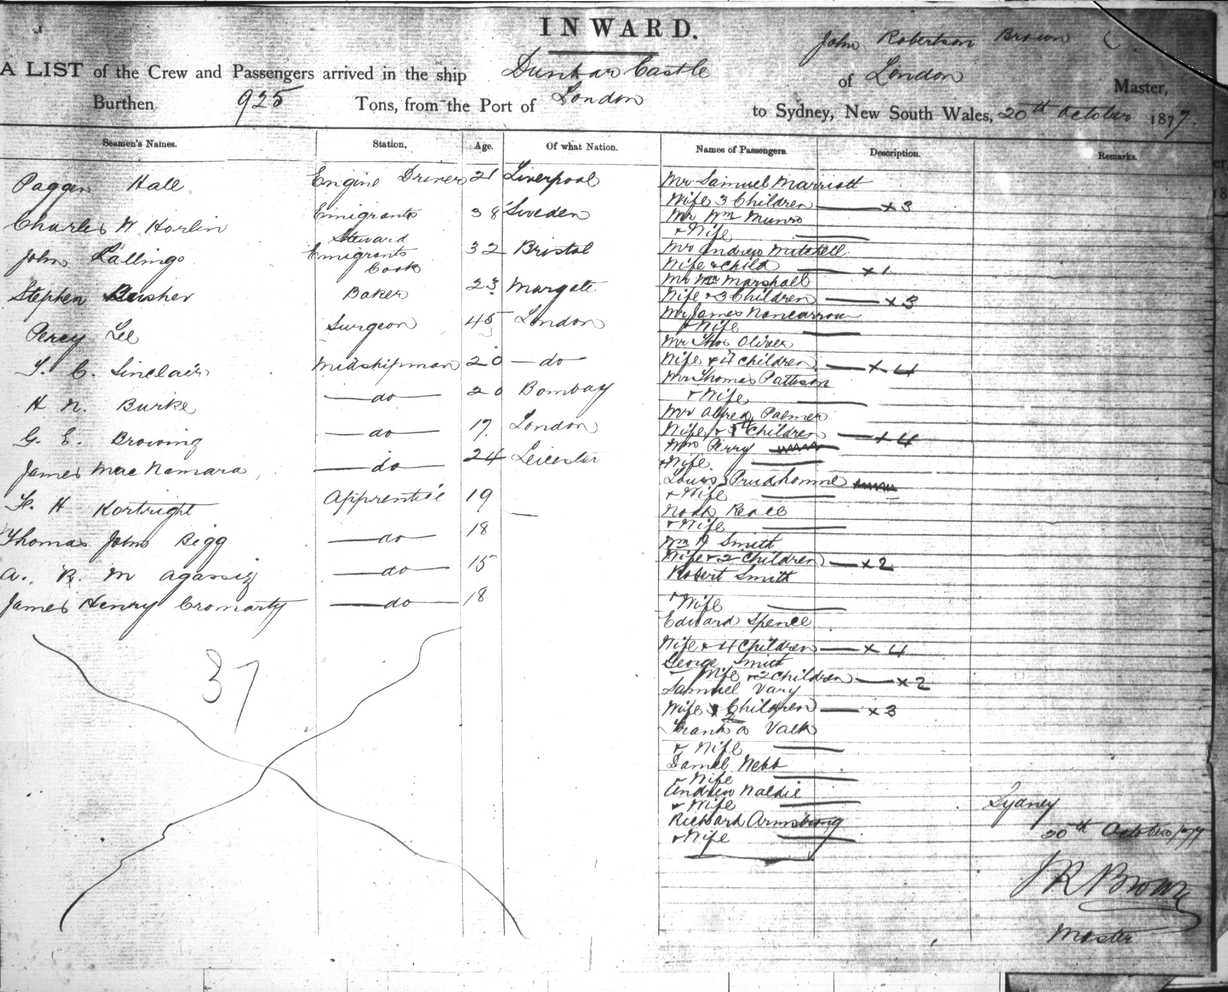 INWARD.
John Robertson Brown
A LIST of the Crew and Passengers arrived in the ship Dunbar Castle of London Master,
Burthen 925 Tons, from the Port of London to Sydney, New South Wales, 20th October 1877.
Seamen's Names. Station, Age. Of what Nation. Names of Passengers. Description. Remarks.
Paggen Hall Engine Driver 21 Liverpool
Charles W Horlin Emigrants Steward 38 Sweden
John Lallings Emigrants Cook 32 Bristol
Stephen Baker 23 Margate
Percy Lee Surgeon 45 London
T. C. Sinclair Midshipman 20 — do —
H N. Burke — do — 20 Bombay
G. E. Browing — do — 17. London
James MacNamara — do — 24 Leicester
F. H Kortright Apprentice 19 —
Thomas John Bigg — do — 18
A. R. M Agassiz — do — 15
James Henry Cromarty — do — 18
37
Mr Samuel Marriott
Wife 3 Children — x 3
Mr Wm Munro
+ Wife —
Mr Andrew Mitchell
Wife + Child — x 1
Mr Marshall
Wife + 3 Children — x 3
Mr James Noncarrow
+ Wife —
Mr Thos Oliver
Wife + 4 Children — x 4
Mr Thomas Pattison
+ Wife —
Mr Alfred Palmer
Wife + Children — x 4
Perry
+ Wife —
Louis Prudhomme
+ Wife —
Noah
+ Wife —
Wm H Smith
Wife + 2 Children — x 2
Robert Smith
+ Wife —
Edward Spence
Wife + 4 Children — x 4
George Smith
Wife + 2 Children — x 2
Samuel Vary
Wife Children — x 3
Frank Valk
+ Wife —
Daniel Webb
+ Wife —
Andrew Naldie
+ Wife —
Richard Armstrong
+ Wife —
Sydney
20th October 1877
J R Brown
Master